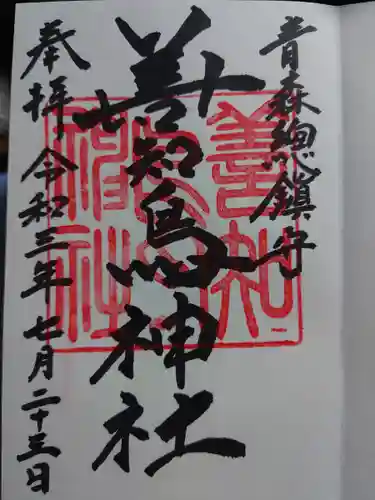 青森總鎮守
善知鳥神社
奉拝 令和三年七月二十三日
善知鳥神社